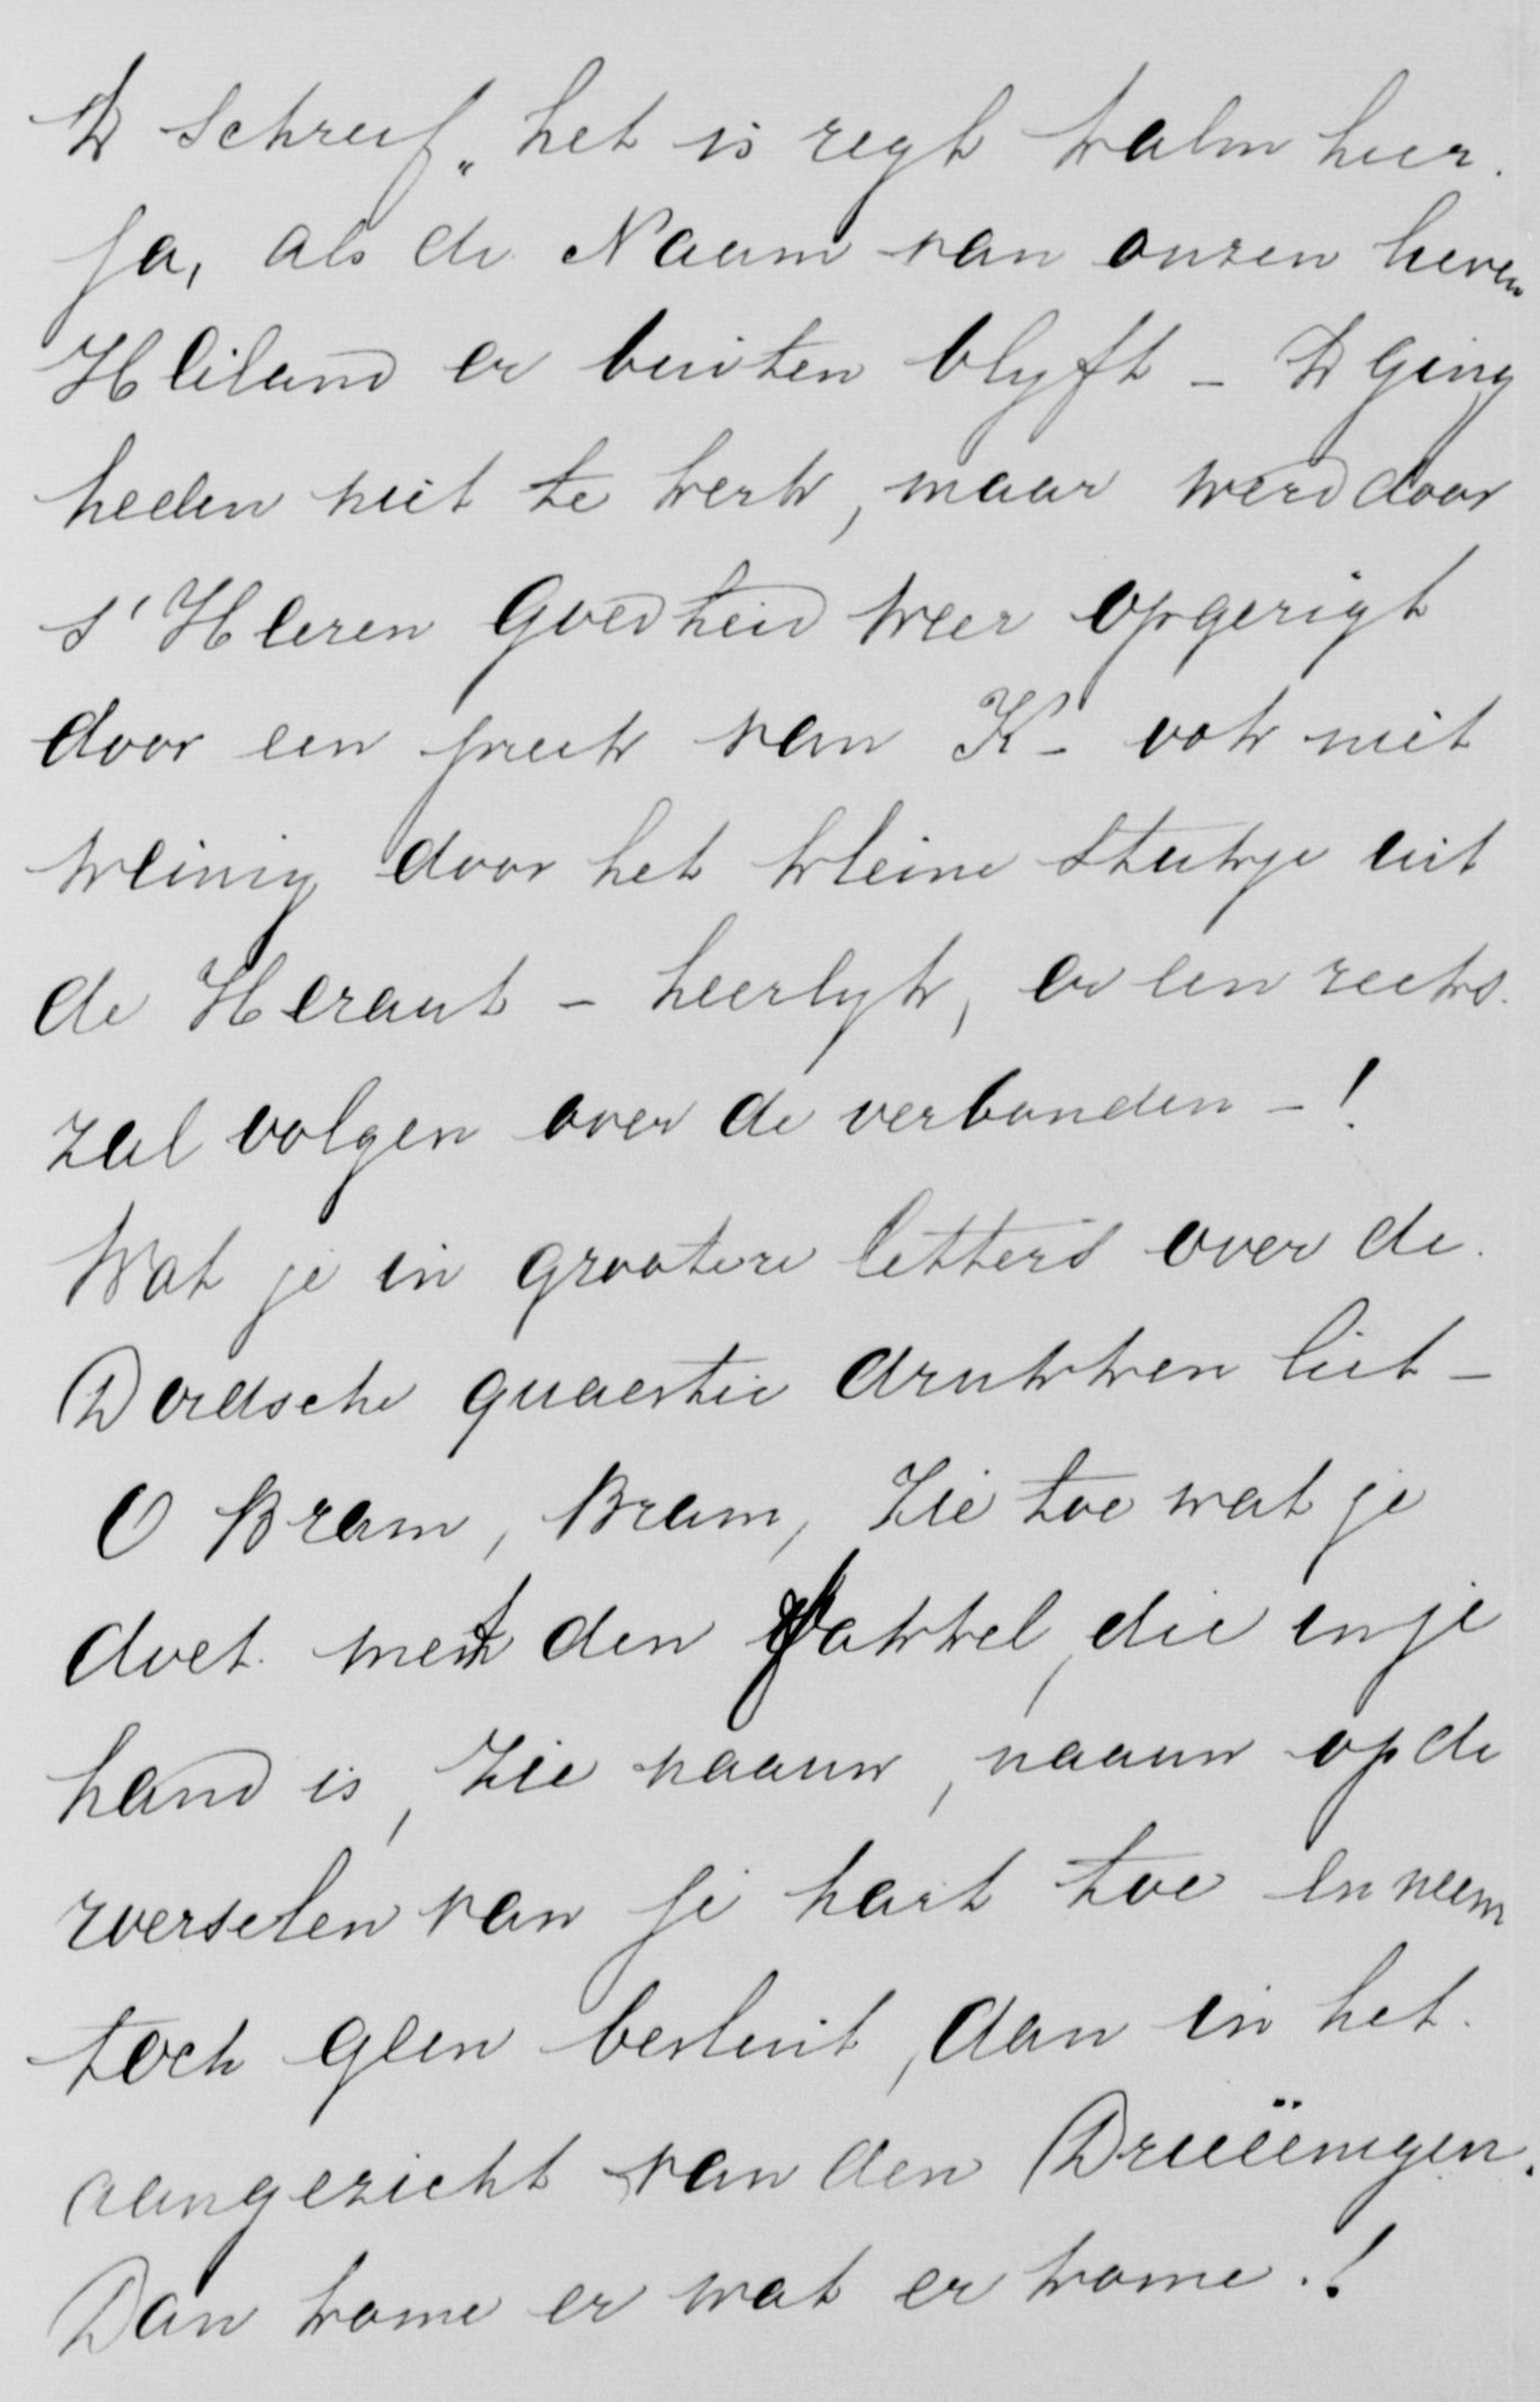 Ik schreef „het is regt kalm hier.
Ja, als de Naam van onzen lieven
Heiland er buiten blyft – Ik ging
heden niet te kerk, maar werd door
s' Heeren Goedheid weer opgerigt
door een preek van K – ook niet
weinig door het kleine stukje uit
de Heraut – heerlyk, er een reeks
zal volgen over de verbonden – !
Wat je in grootere letters over de
Dordsche quaestie drukken liet –
O Bram, Bram, Zie toe wat je
doet met den fakkel, die in je
hand is, Zie naauw, naauw op de
roerselen van je hart toe en neem
toch geen besluit, dan in het
aangezicht van den Drieëenigen.
Dan kome er wat er kome.!